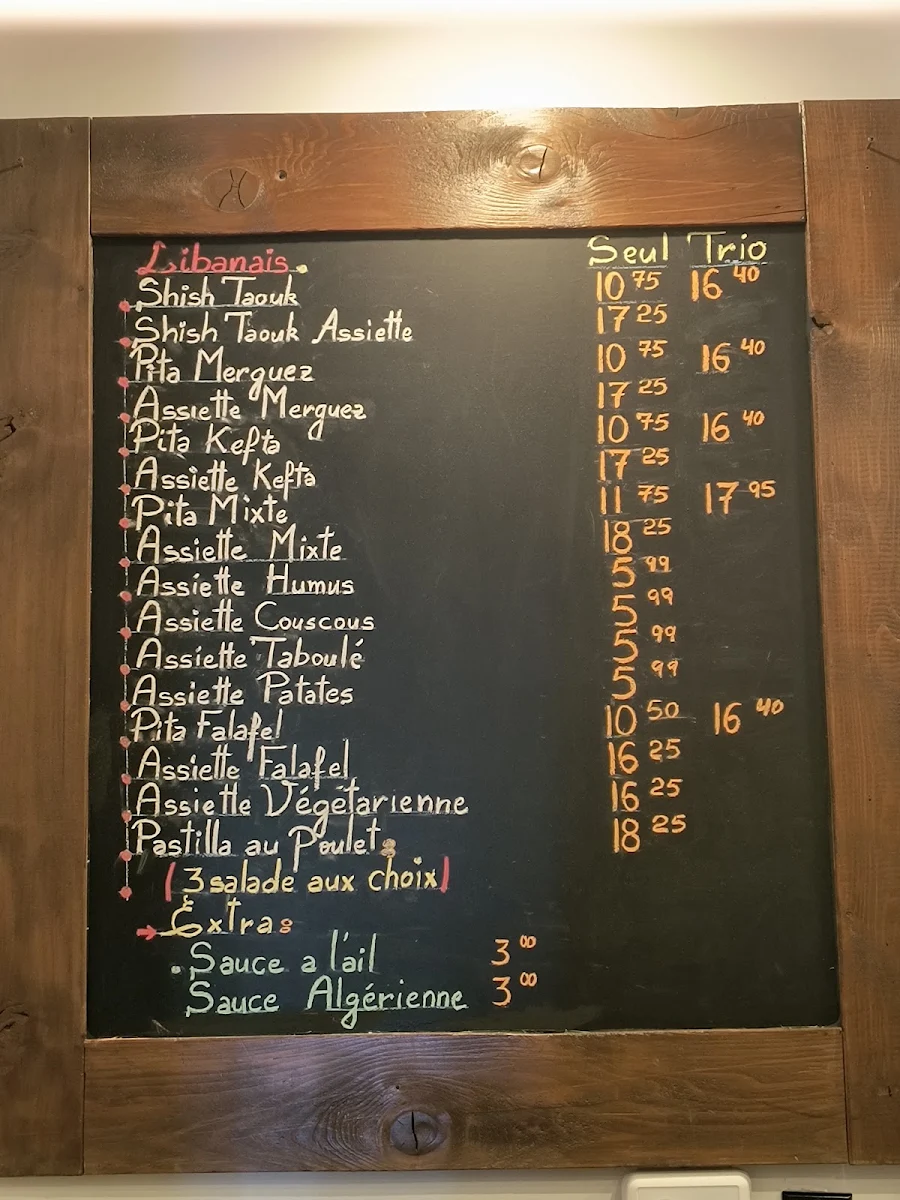 Libanais. Seul Trio
Shish Taouk 10 75 16 40
Shish Taouk Assiette 17 25
Pita Merguez 10 75 16 40
Assiette Merguez 17 25
Pita Kefta 10 75 16 40
Assiette Kefta 17 25
Pita Mixte 11 75 17 95
Assiette Mixte 18 25
Assiette Humus 5 99
Assiette Couscous 5 99
Assiette Taboulé 5 99
Assiette Patates 5 99
Pita Falafel 10 50 16 40
Assiette Falafel 16 25
Assiette Végétarienne 16 25
Pastilla au Poulet 18 25
(3 salade aux choix)
Extra:
Sauce a l'ail 3 00
Sauce Algérienne 3 00